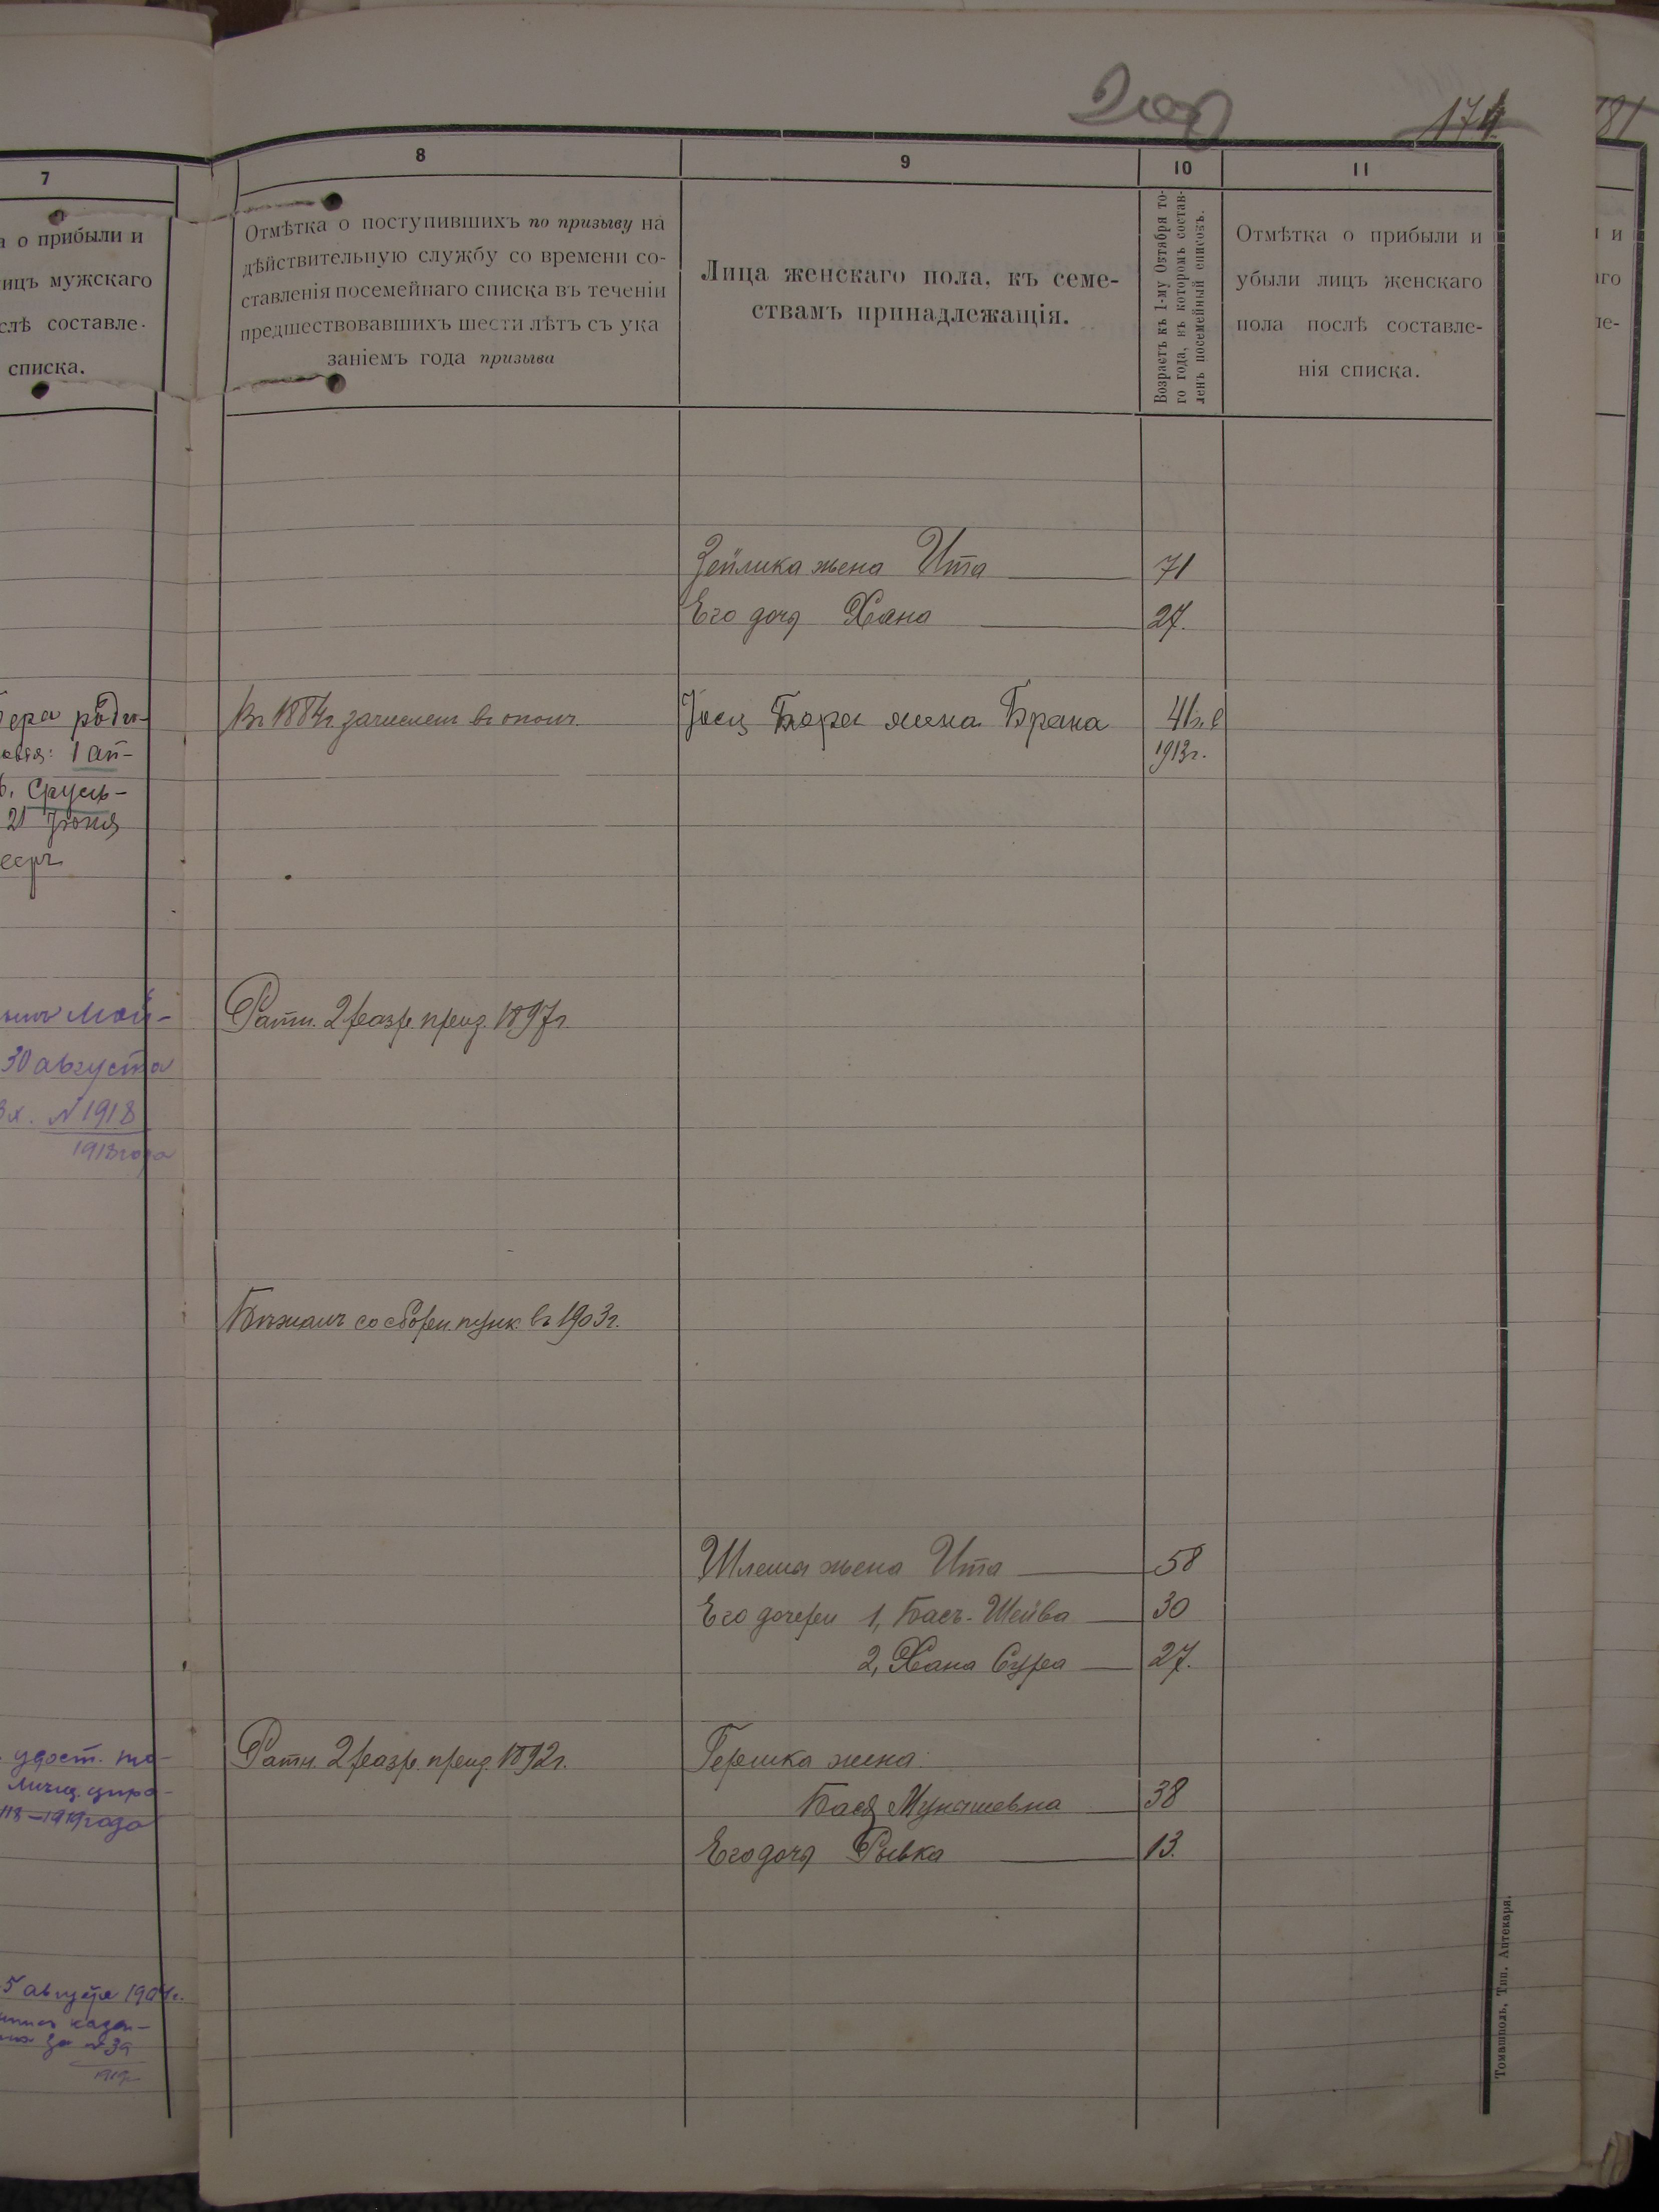 200
174
181
7
а о прибыли и
ицъ мужскаго
слѣ составле-
списка.
8
Отмѣтка о поступившихъ по призыву на
дѣйствительную службу со времени со-
ставленія посемейнаго списка въ теченіи
предшествовавшихъ шести лѣтъ съ ука
заніемъ года призыва
9
Лица женскаго пола, къ семе-
ствамъ принадлежащія.
10
Возрастъ къ 1-му Октября то-
го года, въ которомъ состав-
ленъ посемейный списокъ.
11
Отмѣтка о прибыли и
убыли лицъ женскаго
пола послѣ составле-
нія списка.
Зейлика жена Ита 71
Его дочь Хана 27.
Въ 1884г. зачислен въ ополч.
Жена Брана 41 л. в
1913г.
1 ап-
Сруль-
21 Июня
Ратн. 2 разр. приз. 1897г.
30 августа
Вх. №1918
1913 года
Бѣжалъ со сборн. пунк. въ 1903г.
Шлема жена Ита 58
Его дочери 1, Бася-Шейва 30
2, Хана Сура 27.
Ратн. 2 разр. приз. 1892г.
Гершка жена:
Бася Мунашевна 38
Его дочь Рывка 13.
удост.
118-1919 года
5 августа
за №39
Томашполь, Тип. Аптекаря.